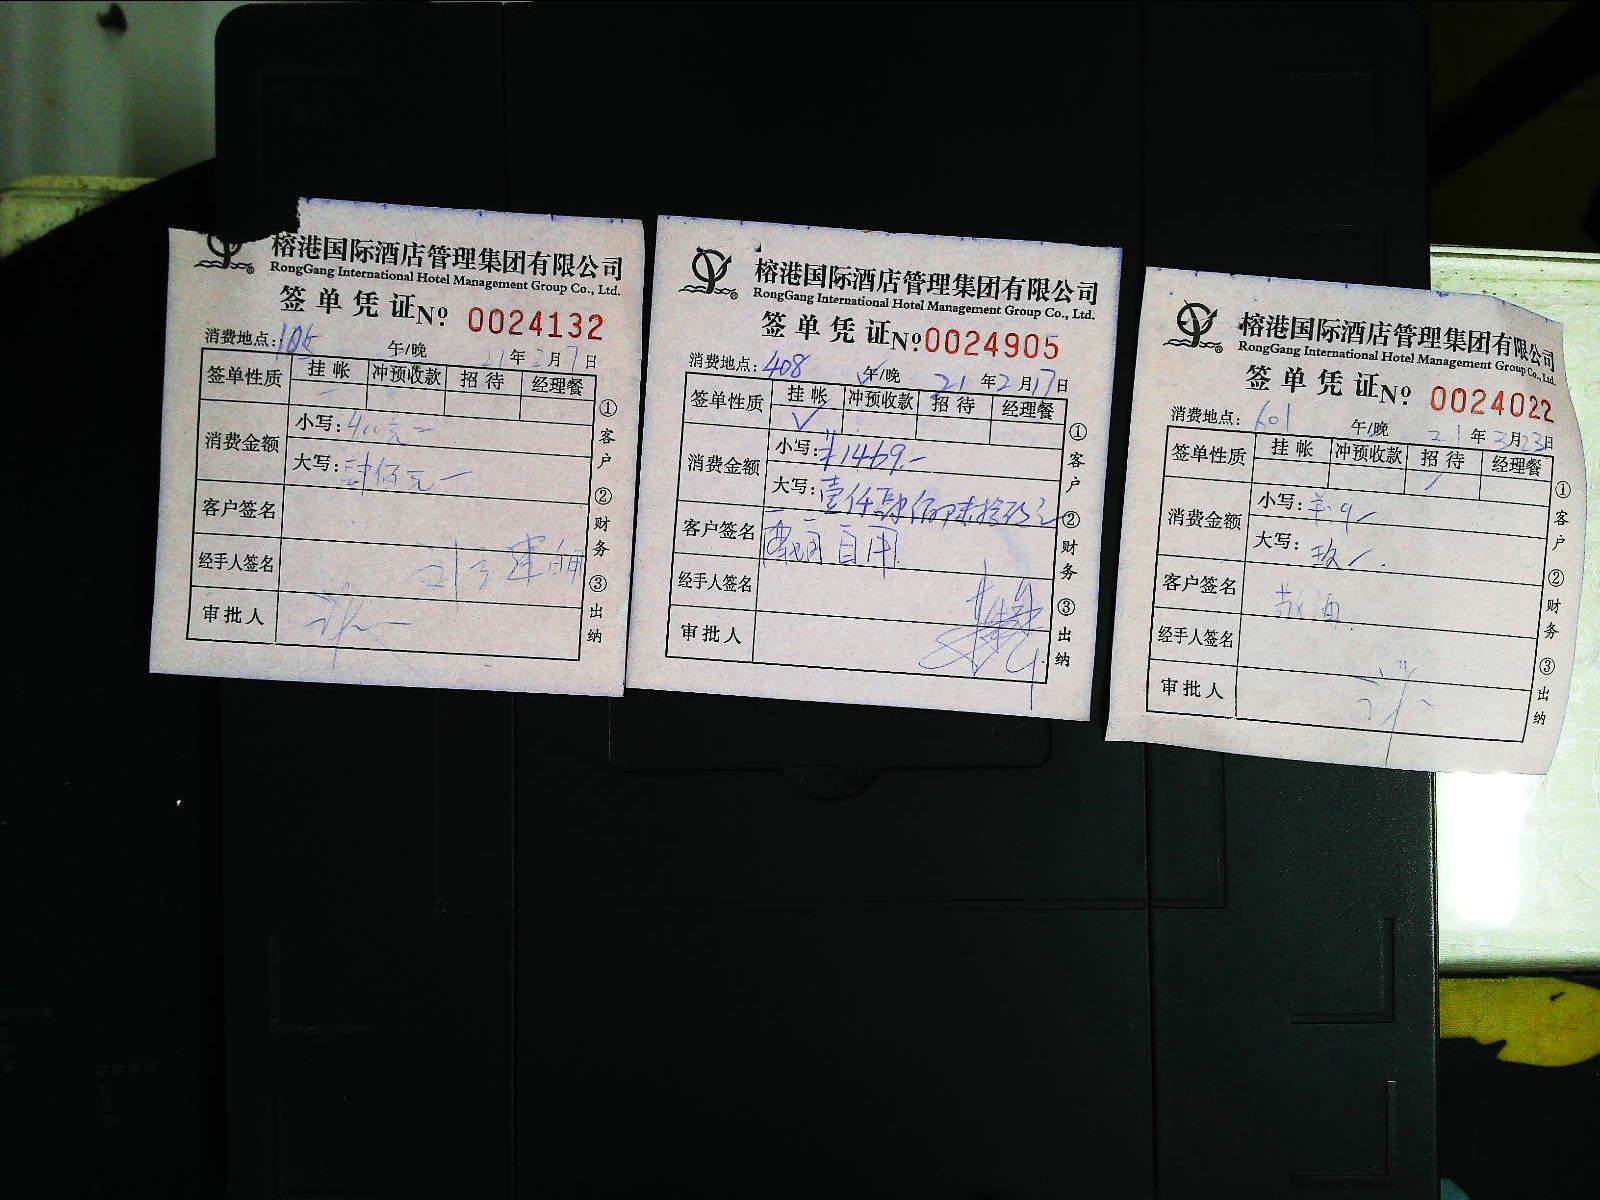 榕港国际酒店管理集团有限公司
RongGang International Hotel Management Group Co., Ltd.
签单凭证 No 0024132
消费地点: 106 午/晚 21年2月7日
签单性质 挂帐 冲预收款 招待 经理餐
消费金额 小写: 400元一
大写: 肆佰元一
客户签名
经手人签名
审批人
①客户 ②财务 ③出纳
榕港国际酒店管理集团有限公司
RongGang International Hotel Management Group Co., Ltd.
签单凭证 No 0024905
消费地点: 408 午/晚 21年2月17日
签单性质 挂帐 冲预收款 招待 经理餐
✓
消费金额 小写: ¥1469.-
大写: 壹仟肆佰陆拾玖元
客户签名 自用
经手人签名
审批人
①客户 ②财务 ③出纳
榕港国际酒店管理集团有限公司
RongGang International Hotel Management Group Co., Ltd.
签单凭证 No 0024022
消费地点: 601 午/晚 21年2月23日
签单性质 挂帐 冲预收款 招待 经理餐
消费金额 小写: ¥:9/-
大写: 玖/.
客户签名 敬酒
经手人签名
审批人
①客户 ②财务 ③出纳